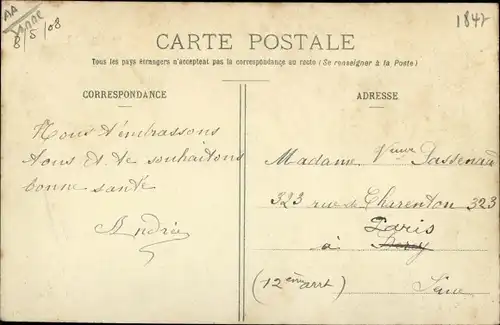 8/5/08
1847
CARTE POSTALE
Tous les pays étrangers n'acceptent pas la correspondance au recto (Se renseigner à la Poste)
CORRESPONDANCE
ADRESSE
Nous t'embrassons
tous et te souhaitons
bonne santé
Madame Veuve
323 rue de Charenton 323
Paris
à
(12ème arrt)
Seine